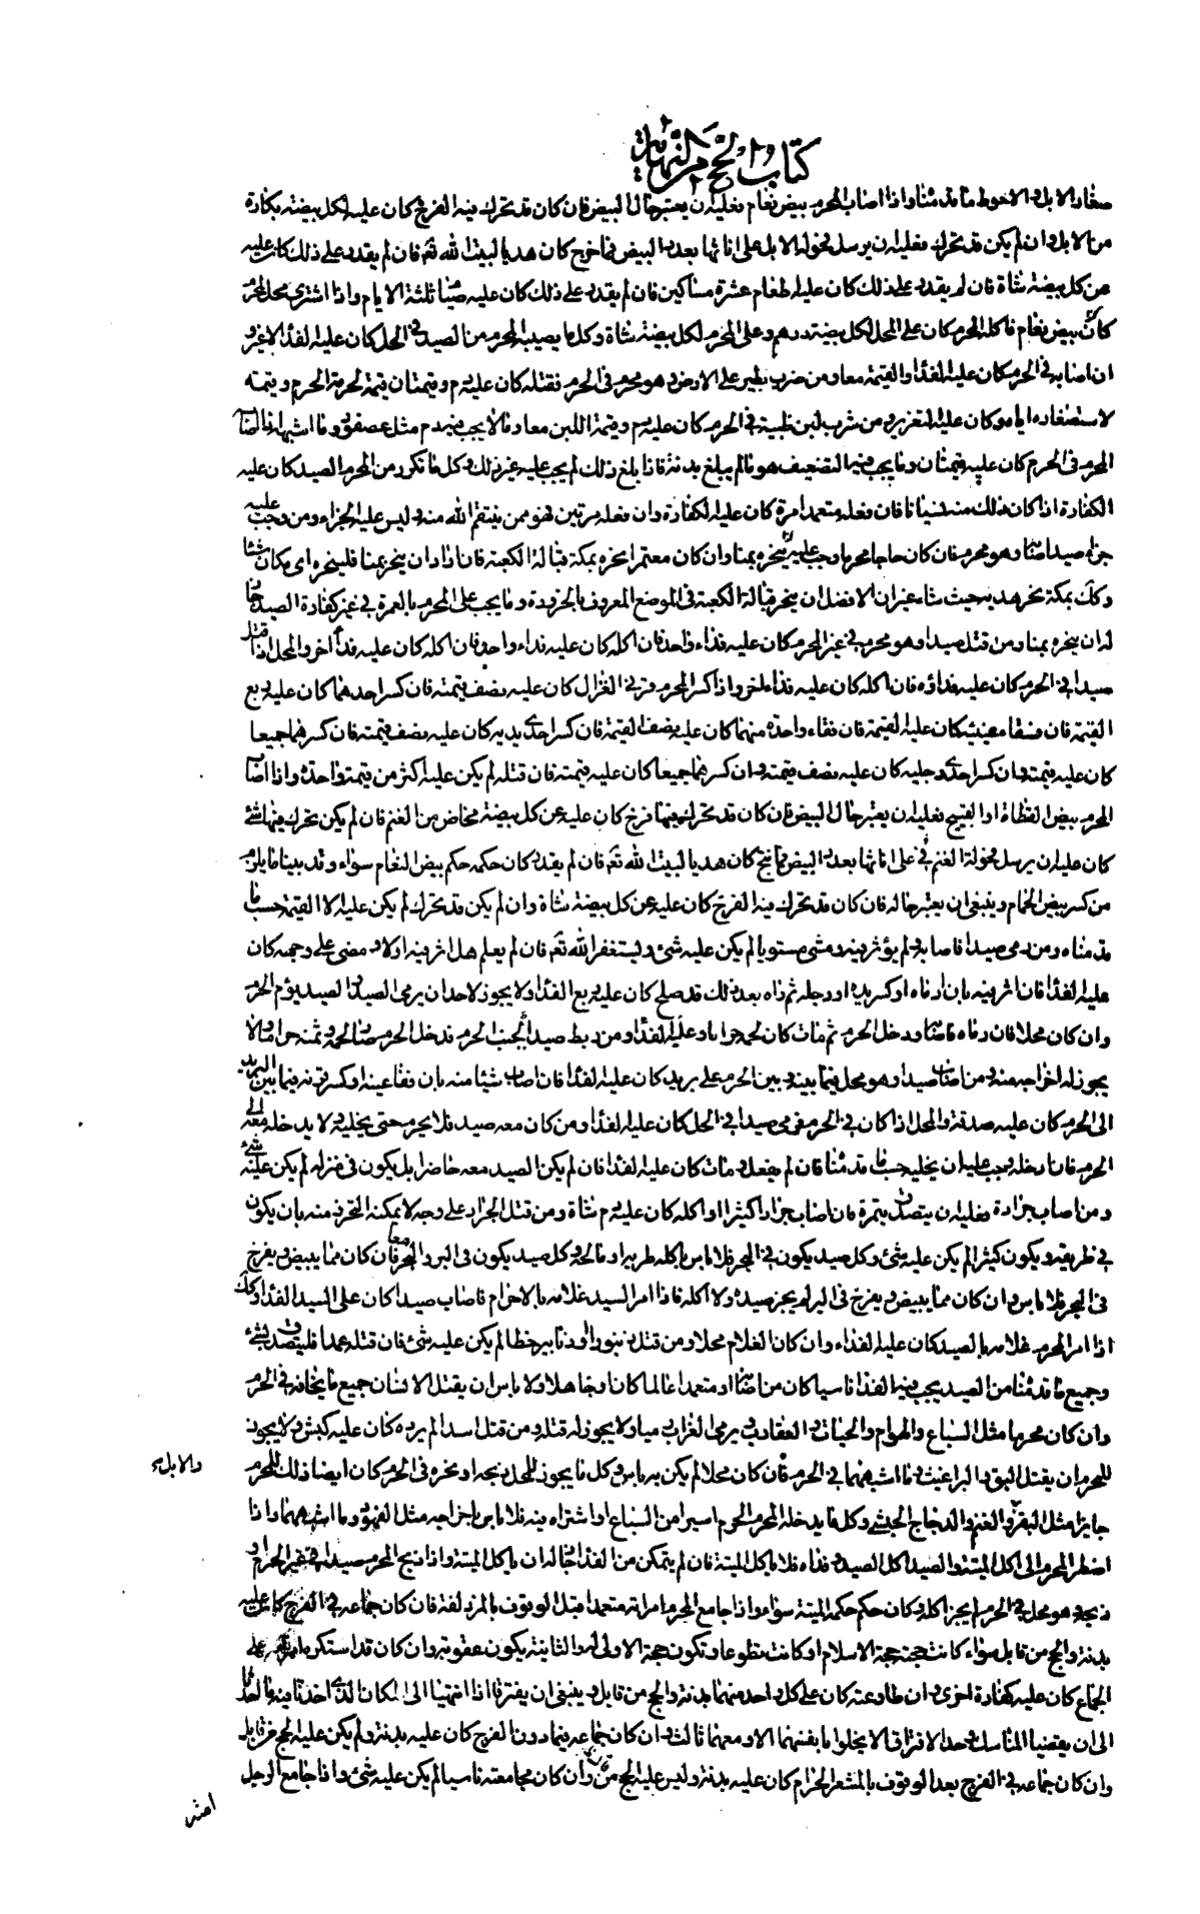 كتاب الحج من النهاية
صغار الابل والاحوط ما قدمناه واذا اصاب المحرم بيض نعام فعليه ان يعتبر حال البيض فان كان قد تحرك فيه الفرخ كان عليه لكل بيضة بكارة
من الابل وان لم يكن قد تحرك فعليه ان يرسل فحولة الابل على اناثها بعدد البيض فما خرج كان هديا لبيت الله تعـ فان لم يقدر على ذلك كان عليه
عن كل بيضة شاة فان لم يقدر على ذلك كان عليه اطعام عشرة مساكين فان لم يقدر على ذلك كان عليه صيام ثلثة الايام واذا اشترى محل لمحرم
كان بيض نعام فاكله المحرم كان على المحل لكل بيضة درهم وعلى المحرم لكل بيضة شاة وكل ما يصيبه المحرم من الصيد في الحل كان عليه الفداء لا غير و
ان اصابه في الحرم كان عليه الفداء والقيمة معا ومن ضرب بطير على الارض وهو محرم في الحرم فقتله كان عليه دم وقيمتان قيمة لحرمة الحرم وقيمته
لاستصغاره اياه وكان عليه التعزير ومن شرب لبن ظبية في الحرم كان عليه دم وقيمة اللبن معا وما لا يجب فيه دم مثل عصفور وما اشبهه اذا اصابه
المحرم في الحرم كان عليه قيمتان وما يجب فيه التضعيف هو ما لم يبلغ بدنة فاذا بلغ ذلك لم يجب عليه غير ذلك وكل ما تكرر من المحرم الصيد كان عليه
الكفارة اذا كان ذلك منه نسيانا فان فعله متعمدا مرة كان عليه الكفارة وان فعله مرتين فهو ممن ينتقم الله منه وليس عليه الجزاء ومن وجب عليه
جزاء صيد اصابه وهو محرم فان كان حاجا محرما وجب عليه ان ينحره بمنا وان كان معتمرا نحره بمكة قبالة الكعبة فان اراد ان ينحر بمنا فلينحره اى مكان شاء
وكك بمكة ينحر هديه حيث شاء غير ان الافضل ان ينحر قبالة الكعبة في الموضع المعروف بالحزورة وما يجب على المحرم بالعمرة في غير كفارة الصيد جاز
له ان ينحره بمنا ومن قتل صيدا وهو محرم في غير الحرم كان عليه فداء واحد فان اكله كان عليه فداء اخر والمحل اذا قتل
صيدا في الحرم كان عليه فداؤه فان اكله كان عليه فداء اخر واذا كسر المحرم قرني الغزال كان عليه نصف قيمته فان كسر احدهما كان عليه ربع
القيمة فان فقاء عينيه كان عليه القيمة فان فقاء واحدة منهما كان عليه نصف القيمة فان كسر احدى يديه كان عليه نصف قيمته فان كسرهما جميعا
كان عليه قيمته وان كسر احدى رجليه كان عليه نصف قيمته وان كسرهما جميعا كان عليه قيمته فان قتله لم يكن عليه اكثر من قيمة واحدة واذا اصاب
المحرم بيض القطاة او القبج فعليه ان يعتبر حال البيض فان كان قد تحرك فيها فرخ كان عليه عن كل بيضة مخاض من الغنم فان لم يكن تحرك فيها شئ
كان عليه ان يرسل فحولة الغنم في على اناثها بعدد البيض فما نتج كان هديا لبيت الله تعـ فان لم يقدر كان حكمه حكم بيض النعام سواء وقد بينا ما يلزم
من كسر بيض الحمام وينبغي ان يعتبر حاله فان كان قد تحرك فيه الفرخ كان عليه عن كل بيضة شاة وان لم يكن قد تحرك لم يكن عليه الا القيمة حسب ما
قدمناه ومن رمى صيدا فاصابه ولم يؤثر فيه ومشى مستويا لم يكن عليه شئ وليستغفر الله تعـ فان لم يعلم هل اثر فيه او لا ومضى على وجهه كان
عليه الفداء فان اثر فيه بان ادماه او كسر يده او رجله ثم رآه بعد ذلك قد صلح كان عليه ربع الفداء ولا يجوز لاحد ان يرمى الصيد والصيد يؤم الحرم
وان كان محلا فان رماه فاصابه ودخل الحرم ثم مات كان لحمه حراما وعليه الفداء ومن ربط صيدا بجنب الحرم فدخل الحرم صار لحمه وثمنه حراما ولا
يجوز له اخراجه منه ومن اصاب صيدا وهو محل فيما بينه وبين الحرم على بريد كان عليه الفداء فان اصاب شيئا منه بان فقاء عينه او كسر قرنه فيما بين البريد
الى الحرم كان عليه صدقة والمحل اذا كان في الحرم فرمى صيدا في الحل كان عليه الفداء ومن كان معه صيد فلا يحرم حتى يخليه ولا يدخله معه الى
الحرم فان ادخله وجب عليه ان يخليه حسب ما قدمناه فان لم يفعل ومات كان عليه الفداء فان لم يكن الصيد معه حاضرا بل يكون في منزله لم يكن عليه شئ
ومن اصاب جرادة فعليه ان يتصدق بتمرة فان اصاب جرادا كثيرا او اكله كان عليه دم شاة ومن قتل الجراد على وجه لا يمكنه التحرز منه بان يكون
في طريقه ويكون كثيرا لم يكن عليه شئ وكل صيد يكون في البحر فلا باس باكله طريه ومالحه وكل صيد يكون في البر والبحر معا فان كان مما يبيض ويفرخ
في البحر فلا باس به وان كان مما يبيض ويفرخ في البر لم يجز صيده ولا اكله فاذا امر السيد غلامه بالاحرام فاصاب صيدا كان على السيد الفداء وكك
اذا امر المحرم غلامه بالصيد كان عليه الفداء وان كان الغلام محلا ومن قتل زنبورا او زنابير خطا لم يكن عليه شئ فان قتله عمدا فليتصدق بشئ
وجميع ما قدمنا من الصيد يجب فيه الفداء ناسيا كان من اصابه او متعمدا عالما كان او جاهلا ولا باس ان يقتل الانسان جميع ما يخافه في الحرم
وان كان محرما مثل السباع والهوام والحيات والعقارب ويرمى الغراب رميا ولا يجوز له قتله ومن قتل اسدا لم يرده كان عليه كبش ولا يجوز
للمحرم ان يقتل البق والبراغيث وما اشبههما في الحرم فان كان محلا لم يكن به باس وكل ما يجوز للمحل ذبحه او نحره في الحرم كان ايضا ذلك للمحرم
والابل
جايزا مثل البقر والغنم والدجاج الحبشي وكل ما يدخله المحرم الحرم اسيرا من السباع او اشتراه فيه فلا باس باخراجه مثل الفهود وما اشبههما واذا
اضطر المحرم الى اكل الميتة والصيد اكل الصيد وفداه ولا ياكل الميتة فان لم يتمكن من الفداء جاز له ان ياكل الميتة واذا ذبح المحرم صيدا في غير الحرم او
ذبحه وهو محل في الحرم لم يجز اكله وكان حكمه حكم الميتة سواء واذا جامع المحرم امراته متعمدا قبل الوقوف بالمزدلفة فان كان جماعه في الفرج كان عليه
بدنة والحج من قابل سواء كانت حجته حجة الاسلام او كانت تطوعا وتكون حجة الاولى له والثانية يكون عقوبة وان كان قد استكره امراته على
الجماع كان عليه كفارة اخرى وان طاوعته كان على كل واحد منهما بدنة والحج من قابل وينبغي ان يفترقا اذا انتهيا الى المكان الذى احدثا فيه ما احدثا
الى ان يقضيا المناسك وحد الافتراق الا يخلوا بانفسهما الا ومعهما ثالث وان كان جماعه فيما دون الفرج كان عليه بدنة ولم يكن عليه الحج من قابل
وان كان جماعه في الفرج بعد الوقوف بالمشعر الحرام كان عليه بدنة وليس عليه الحج من قابل وان كان مجامعته ناسيا لم يكن عليه شئ واذا جامع الرجل
امته